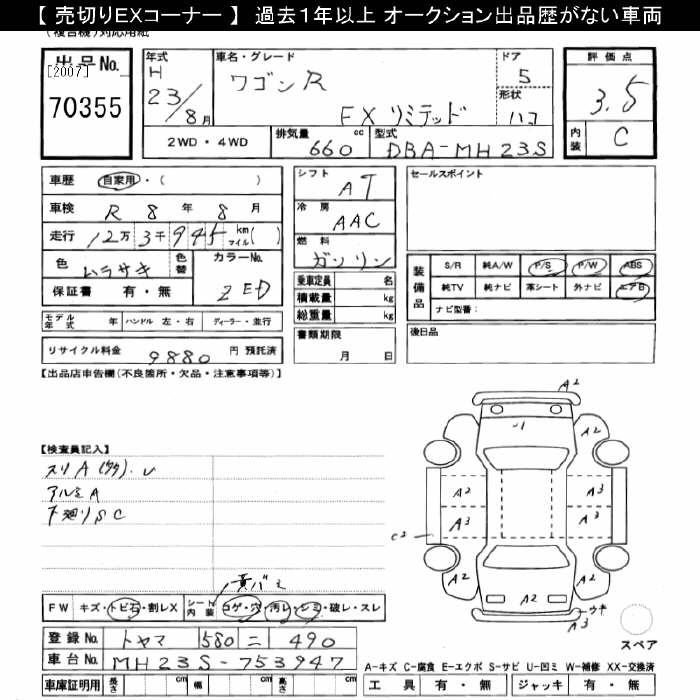 【 売切りEXコーナー 】 過去1年以上 オークション出品歴がない車両
出品No.
[2007]
70355
年式
H
23/8月
車名・グレード
ワゴンR
FX リミテッド
ドア
5
形状
ハコ
評価点
3.5
内装
C
2WD・4WD
排気量
660 cc
型式
DBA-MH23S
車歴 自家用・( )
車検 R 8 年 8 月
走行 12万 3千 945 km マイル( )
色 ムラサキ
色替
カラーNo.
ZED
保証書 有・無
モデル年式 年
ハンドル 左・右
ディーラー・並行
リサイクル料金 9880 円 預託済
シフト
AT
冷房
AAC
燃料
ガソリン
乗車定員 名
積載量 kg
総重量 kg
書類期限
月 日
セールスポイント
装備品
S/R 純A/W P/S P/W ABS
純TV 純ナビ 革シート 外ナビ エアB
ナビ型番:
後日品
【出品店申告欄(不良箇所・欠品・注意事項等)】
【検査員記入】
アルミA
下廻りSC
黄バミ
FW キズ・トビ石・割レX
シート内装 コゲ・穴 汚レ・シミ・破レ・スレ
登録No. トヤマ 580 ニ 490
車台No. MH23S-753947
車庫証明用 長さ 幅 高さ
A2
A2
A2
A3
A2
A3
A3
C2
A2
A2
A2
ウキ
A3
スペア
A-キズ C-腐食 E-エクボ S-サビ U-凹ミ W-補修 XX-交換済
工具 有・無 ジャッキ 有・無